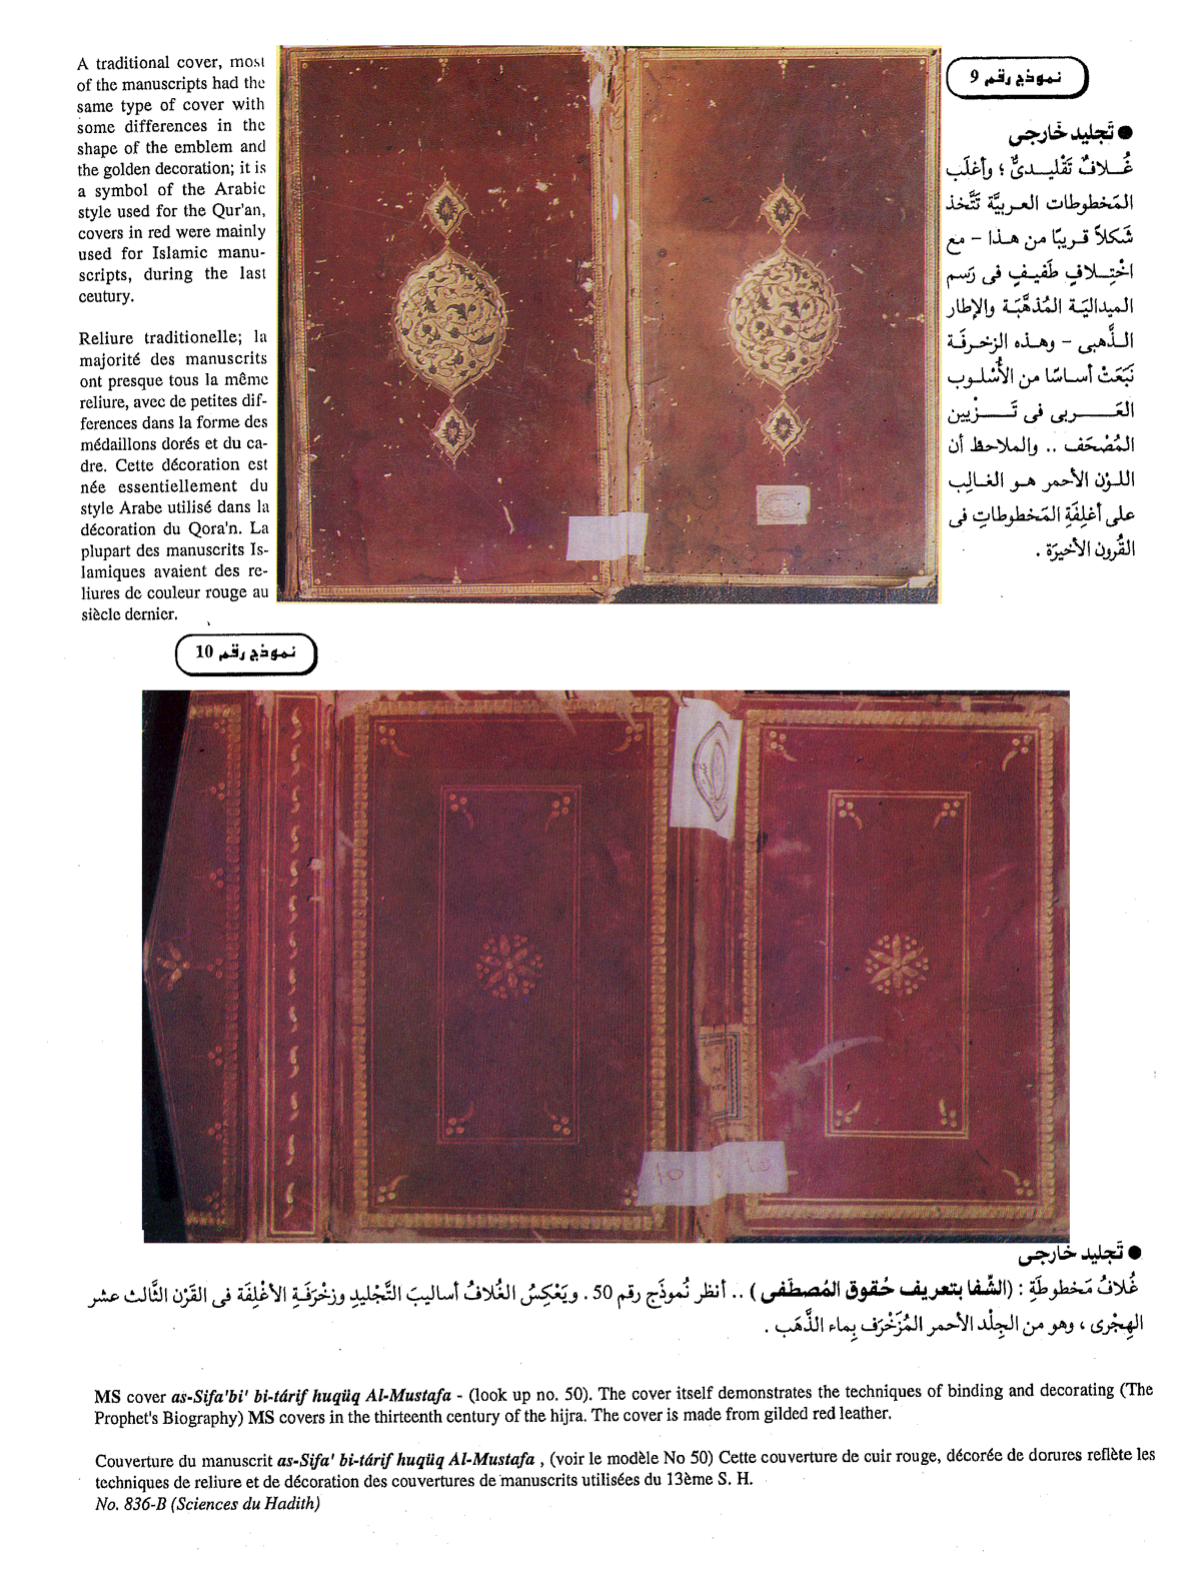 A traditional cover, most
of the manuscripts had the
same type of cover with
some differences in the
shape of the emblem and
the golden decoration; it is
a symbol of the Arabic
style used for the Qur'an,
covers in red were mainly
used for Islamic manu-
scripts, during the last
ceutury.
Reliure traditionelle; la
majorité des manuscrits
ont presque tous la même
reliure, avec de petites dif-
ferences dans la forme des
médaillons dorés et du ca-
dre. Cette décoration est
née essentiellement du
style Arabe utilisé dans la
décoration du Qora'n. La
plupart des manuscrits Is-
lamiques avaient des re-
liures de couleur rouge au
siècle dernier.
نموذج رقم 9
● تَجليد خَارجى
غُلافٌ تَقْليدىٌّ ؛ وأغلَب
المَخطوطات العربيَّة تَتَّخذ
شَكلاً قريبًا من هذا - مع
اخْتِلافٍ طَفيفٍ فى رَسم
الميداليَة المُذهَّبَة والإطار
الذَّهبى - وهذه الزخرفَة
نَبَعَتْ أساسًا من الأُسْلوب
العَربى فى تَزْيين
المُصْحَف .. والملاحظ أن
اللوْن الأحمر هو الغالِب
على أغلِفَةِ المَخطوطاتِ فى
القُرون الأخيرَة .
نموذج رقم 10
10
● تَجليد خارجى
غُلافُ مَخطوطَةِ : (الشِّفا بتعريف حُقوق المُصطَفى ) .. أنظر نُموذَج رقم 50 . ويَعْكِسُ الغُلافُ أساليبَ التَّجْليدِ وزخْرَفَةِ الأغْلِفَة فى القَرْن الثَّالث عشر
الهِجْرى ، وهو من الجِلْد الأحمر المُزَخْرَف بِماء الذَّهَب .
MS cover as-Sifa'bi' bi-tárif huqüq Al-Mustafa - (look up no. 50). The cover itself demonstrates the techniques of binding and decorating (The
Prophet's Biography) MS covers in the thirteenth century of the hijra. The cover is made from gilded red leather.
Couverture du manuscrit as-Sifa' bi-tárif huqüq Al-Mustafa , (voir le modèle No 50) Cette couverture de cuir rouge, décorée de dorures reflète les
techniques de reliure et de décoration des couvertures de manuscrits utilisées du 13ème S. H.
No. 836-B (Sciences du Hadith)